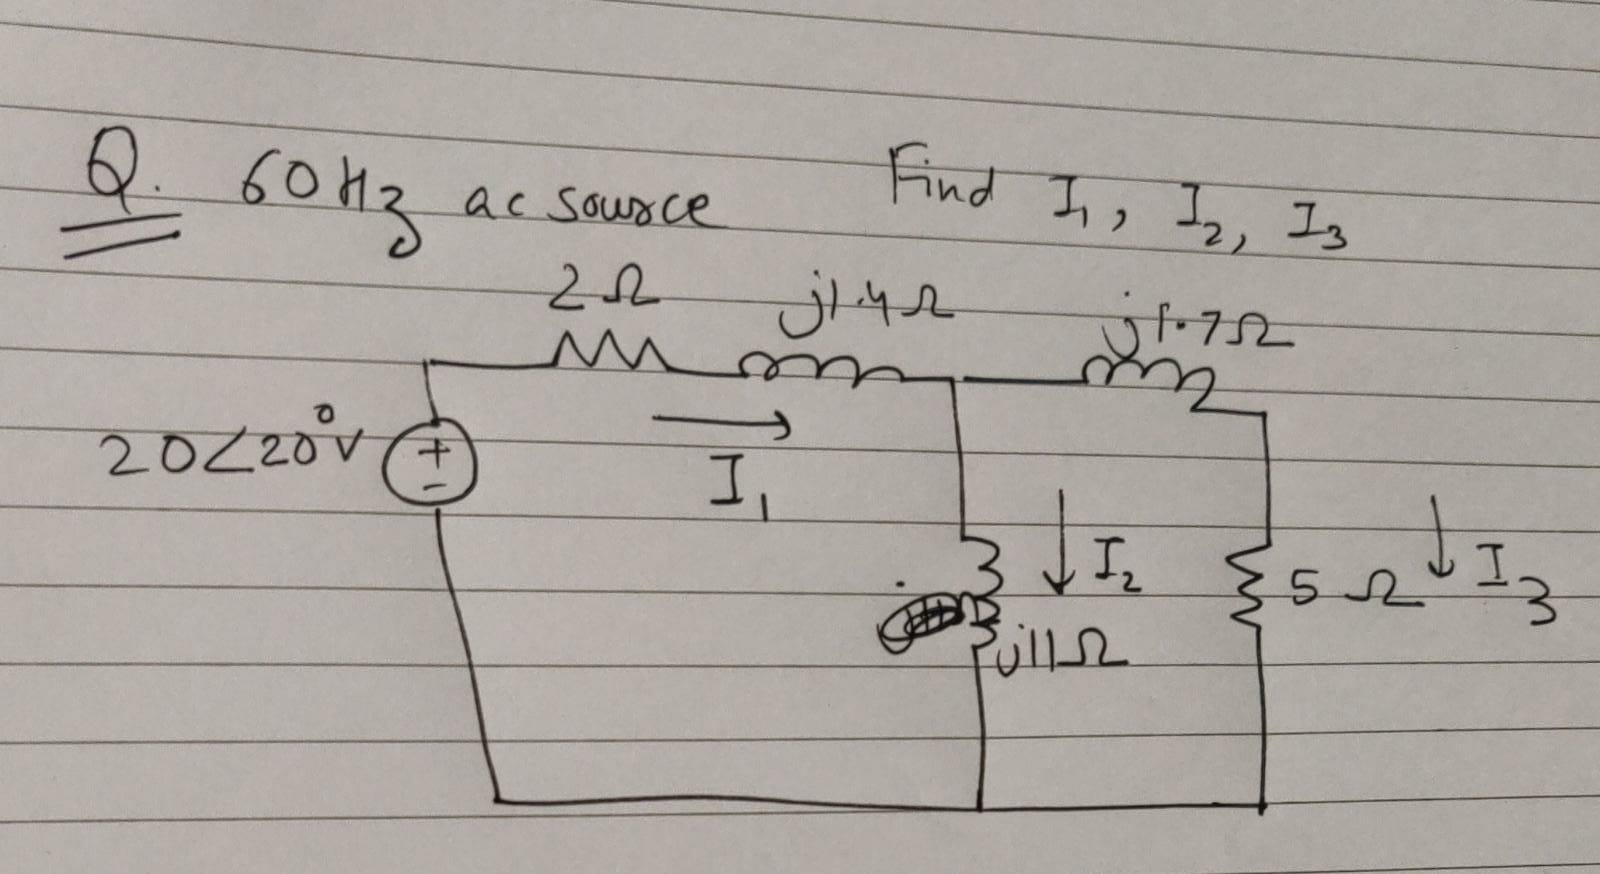 Q. 60 Hz ac source Find I₁, I₂, I₃
2 Ω j1.4 Ω j1.7 Ω
20∠20° V + -
I₁
I₂ 5 Ω I₃
j11 Ω